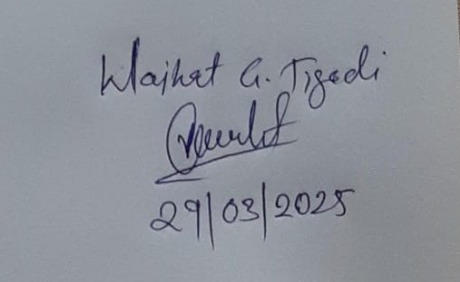 Wajhat G. Tigadi
29/03/2025